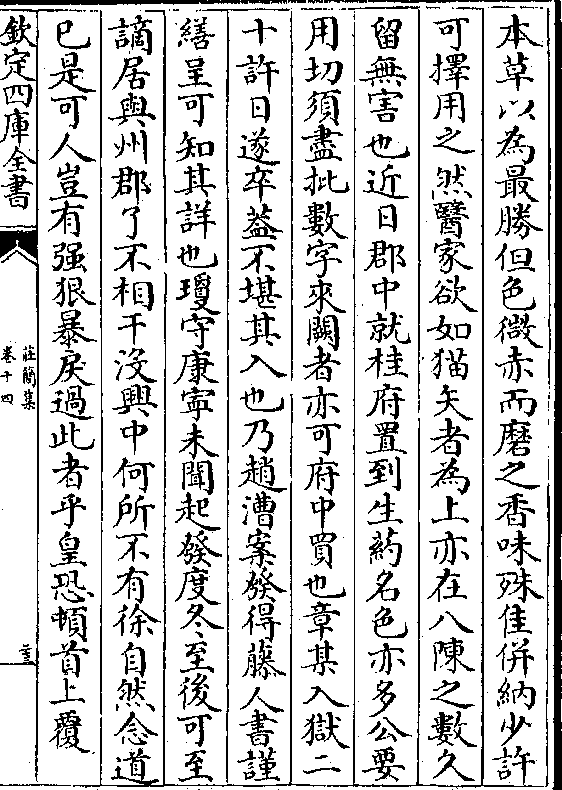 本草以為最勝但色微赤而磨之香味殊佳併納少許
可擇用之然醫家欲如猫矢者為上亦在八陳之數久
留無害也近日郡中就桂府置到生药名色亦多公要
用切須盡批數字來闕者亦可府中買也章某入獄二
十許日遂卒葢不堪其入也乃趙漕案發得藤人書謹
繕呈可知其詳也瓊守康寧未聞起發度冬至後可至
謫居與州郡了不相干没興中何所不有徐自然念道
巳是可人豈有强狠暴戾過此者乎皇恐頓首上覆
欽定四庫全書
莊簡集
卷十四